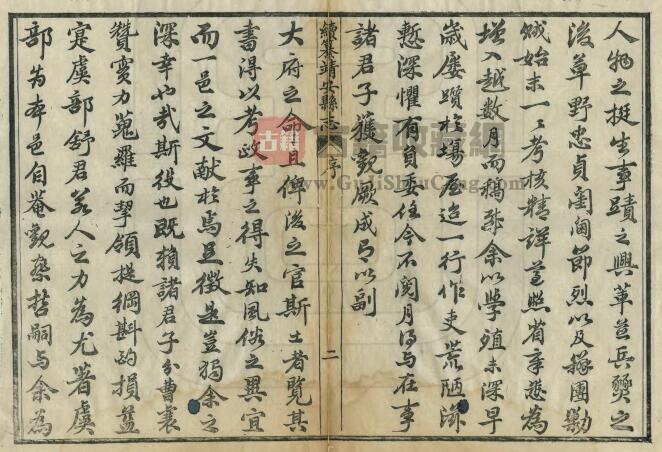 人物之挺生事蹟之興革並兵燹之
後草野忠貞閨閫節烈以及辦團勦
賊始末一一考核精詳並照省章悉為
增入越數月而稿成余以學殖未深早
歲屢躓於場屋迨一行作吏荒陋滋
慙深懼有負委任今不閱月得与在事
諸君子獲觀厥成乃以副
續纂靖安縣志 序 二
大府之命且俾後之官斯土者覽其
書得以考政事之得失知風俗之異宜
而一邑之文献於焉足徵是豈獨余之
深幸也哉斯役也既賴諸君子分曹襄
贊變力蒐羅而挈領提綱斟酌損益
寔虞部舒君某人之力為尤著虞
部為本邑自菴觀察哲嗣与余為
古籍收藏網
www.GuJiShouCang.com